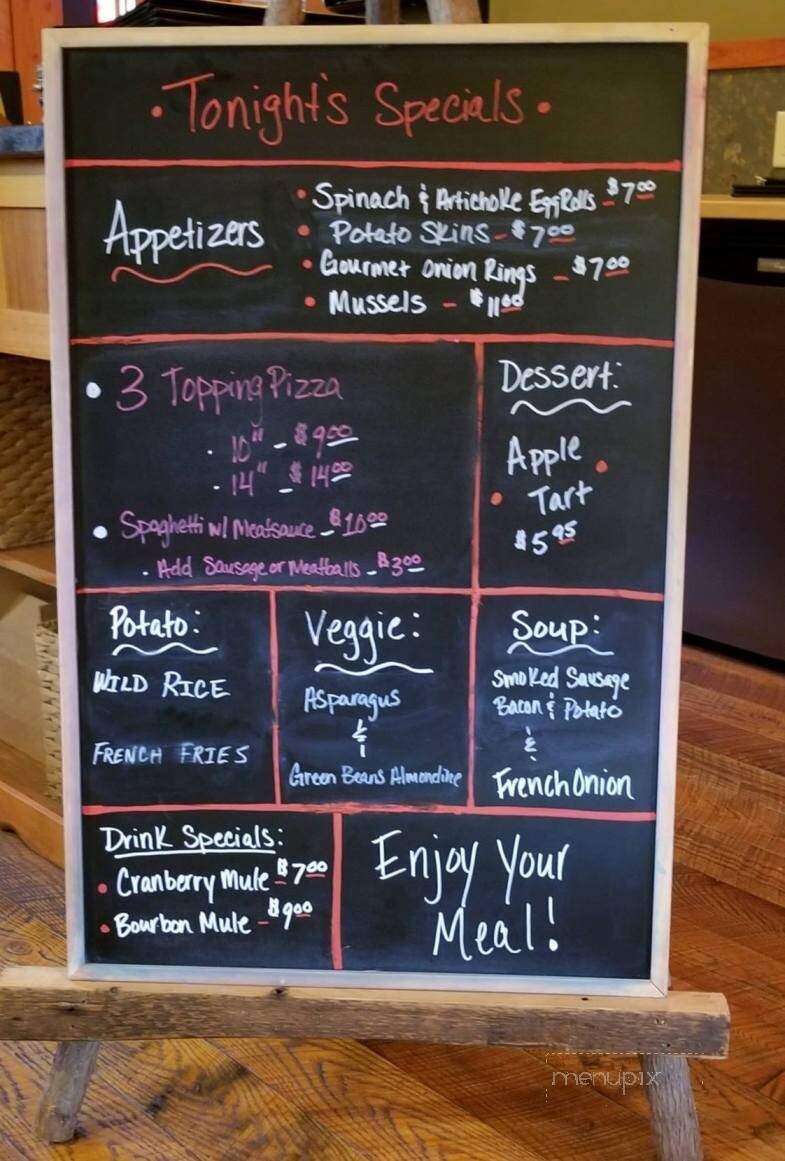 • Tonight's Specials •
Appetizers
• Spinach & Artichoke EggRolls - $7.00
• Potato Skins - $7.00
• Gourmet Onion Rings - $7.00
• Mussels - $11.00
• 3 Topping Pizza
. 10" - $9.00
. 14" - $14.00
• Spaghetti w/ Meatsauce - $10.00
. Add Sausage or Meatballs - $3.00
Dessert:
Apple •
• Tart
$5.95
Potato:
WILD RICE
FRENCH FRIES
Veggie:
Asparagus
&
Green Beans Almondine
Soup:
Smoked Sausage
Bacon & Potato
&
French Onion
Drink Specials:
• Cranberry Mule - $7.00
• Bourbon Mule - $9.00
Enjoy Your
Meal!
menupix